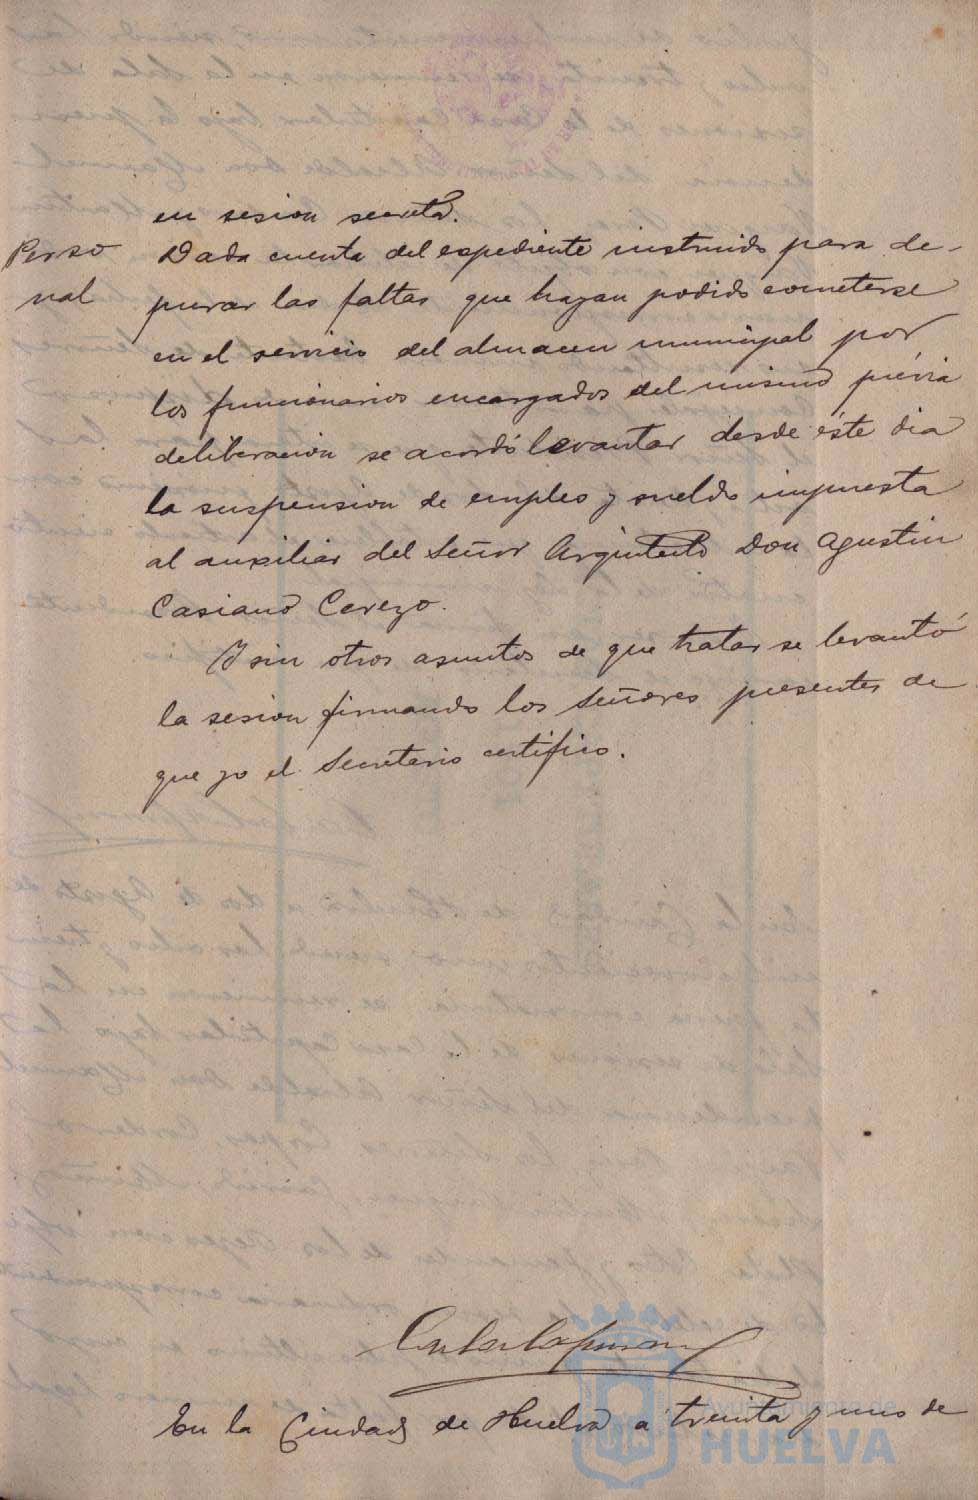 en sesion secreta.
Perso
nal
Dada cuenta del expediente instruido para de-
purar las faltas que hayan podido cometerse
en el servicio del almacen municipal por
los funcionarios encargados del mismo prévia
deliberacion se acordó levantar desde éste dia
la suspension de empleo y sueldo impuesta
al auxiliar del Señor Arquitecto Don Agustin
Casiano Cerezo.
Y sin otros asuntos de que tratar se levantó
la sesion firmando los Señores presentes de
que yo el Secretario certifico.
En la Ciudad de Huelva a treinta y uno de
Ayuntamiento de
HUELVA